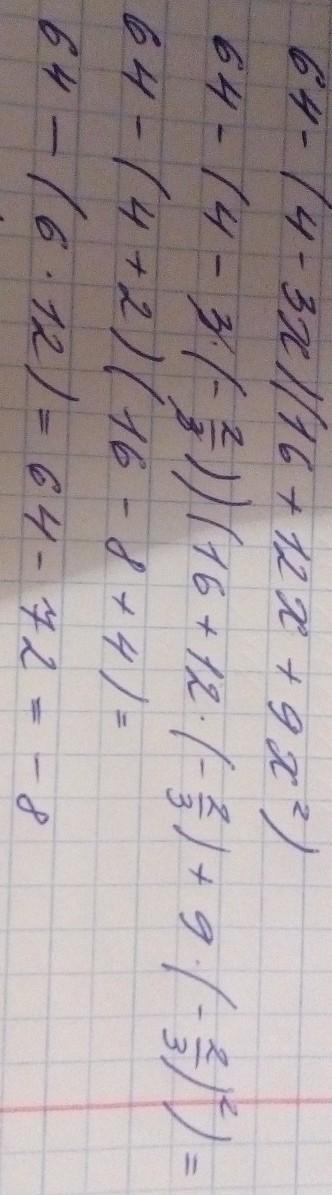 64 - (4 - 3x)(16 + 12x + 9x²)
64 - (4 - 3·(-2/3))(16 + 12·(-2/3) + 9·(-2/3)²) =
64 - (4 + 2)(16 - 8 + 4) =
64 - (6·12) = 64 - 72 = -8